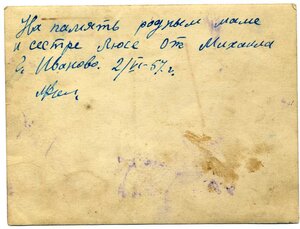 На память родным маме
и сестре Люсе От Михаила
г. Иваново. 2/VI-57 г.